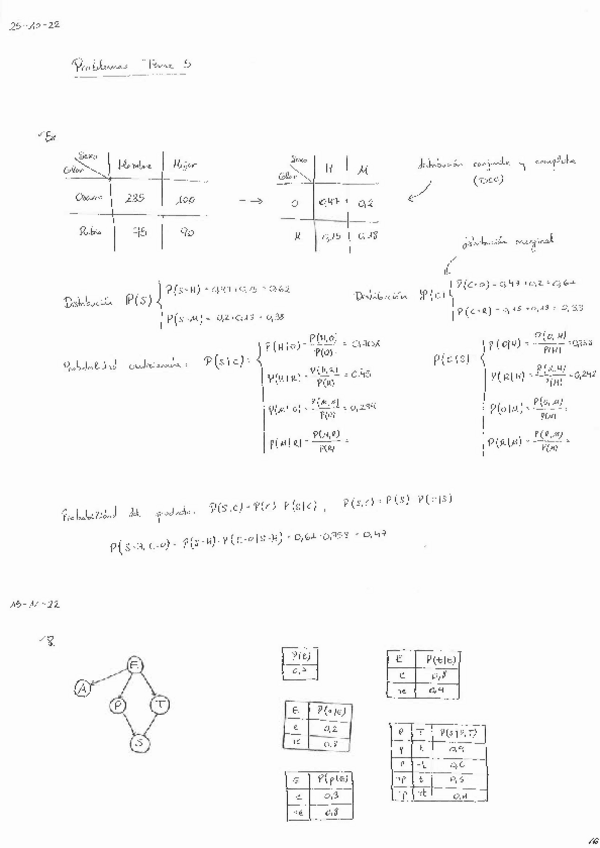 25-10-22
Problemas Tema 5
Ex
Sexo Hombre Mujer
Color
Oscuro 235 100
Rubio 75 90
→
Sexo H M
Color
O 0,47 0,2
R 0,15 0,18
distribución conjunta y completa
distribución marginal
Distribución P(S) P(S=H) = 0,47+0,15 = 0,62
P(S=M) = 0,2+0,18 = 0,38
Distribución P(C) P(C=O) = 0,47+0,2 = 0,67
P(C=R) = 0,15+0,18 = 0,33
Probabilidad condicionada: P(S|C) =
P(H|O) = P(H,O)/P(O) =
P(H|R) = P(H,R)/P(R) = 0,45
P(M|O) = P(M,O)/P(O) = 0,294
P(M|R) = P(M,R)/P(R) =
P(C|S)
P(O|H) = P(O,H)/P(H) = 0,758
P(R|H) = P(R,H)/P(H) = 0,242
P(O|M) = P(O,M)/P(M) =
P(R|M) = P(R,M)/P(M) =
Probabilidad del producto: P(S,C) = P(C) · P(S|C), P(S,C) = P(S) · P(C|S)
P(S=H, C=O) = P(S=H) · P(C=O|S=H) = 0,62 · 0,758 = 0,47
8
E
A
P T
S
E P(t|E)
e 0,8
¬e 0,4
E
e 0,2
¬e 0,8
P T P(s|P,T)
p t
p ¬t
¬p t 0,5
¬p ¬t
E P(p|E)
e
¬e 0,8
16